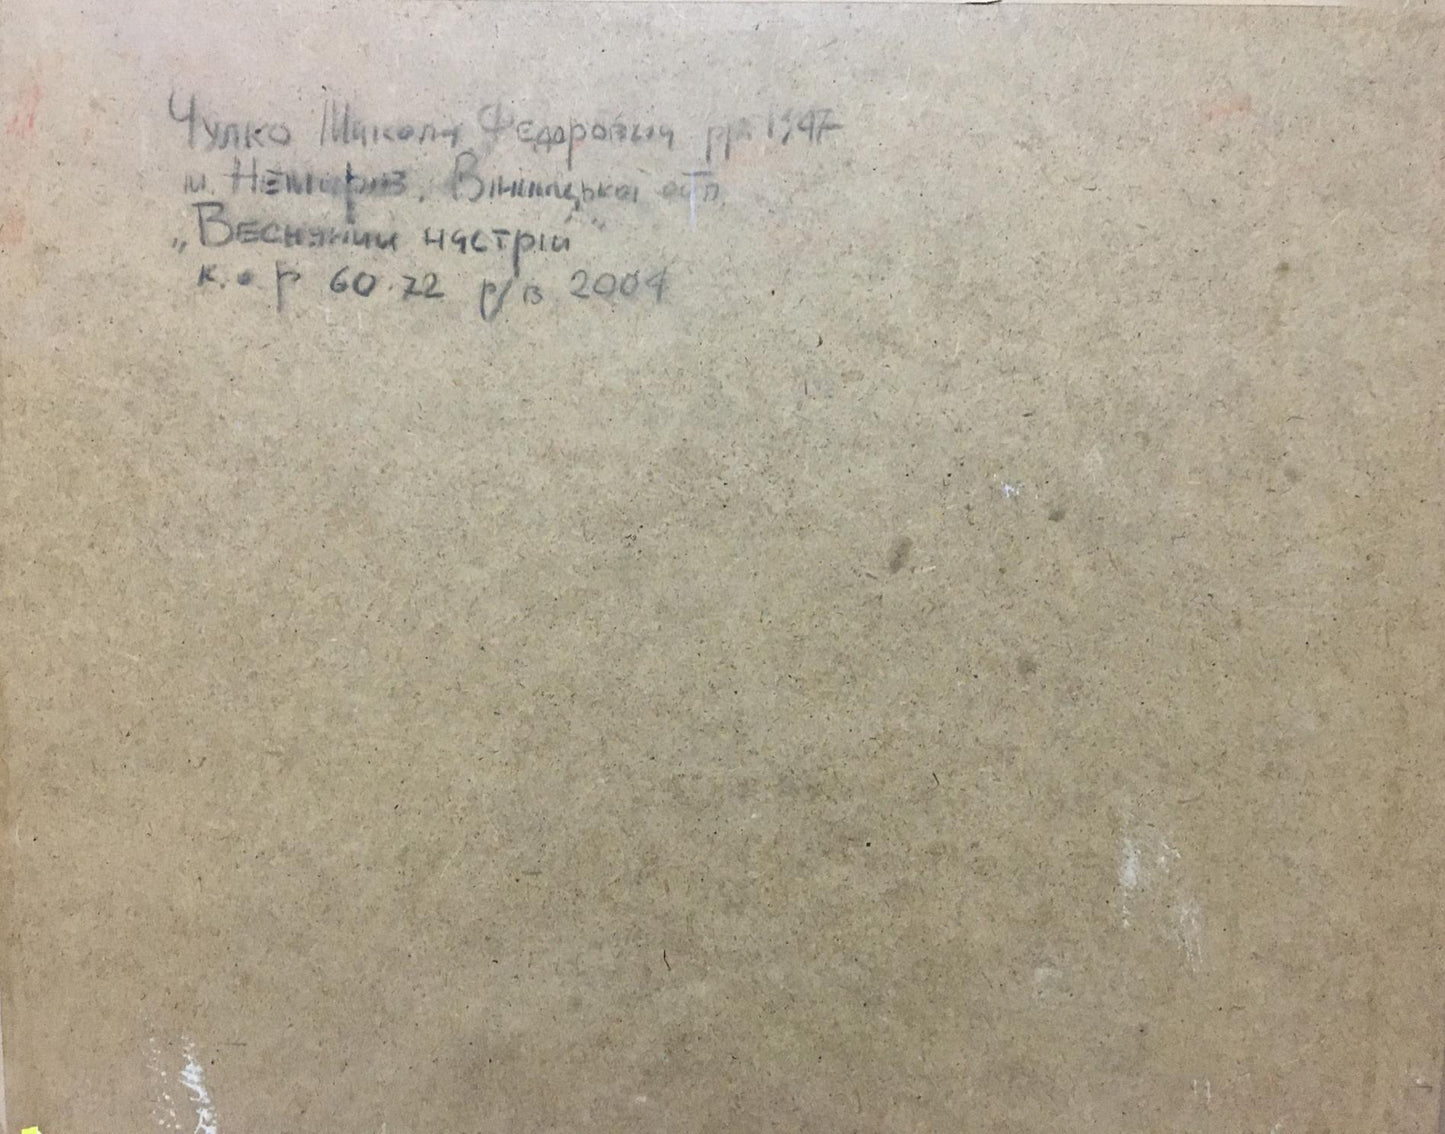 Чулко Микола Федорович р.р 1947
м. Немирів. Вінницької обл.
„Весняний настрій"
к. о р 60.72 р/в 2004